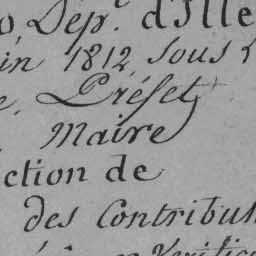 Dép.t d'Ille
1812, Sous
Préfet
Maire
ction de
des Contribu